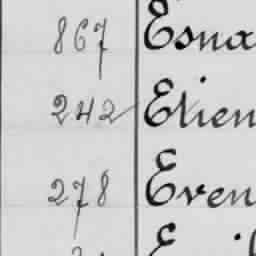 867 Esna
242 Etien
278 Even